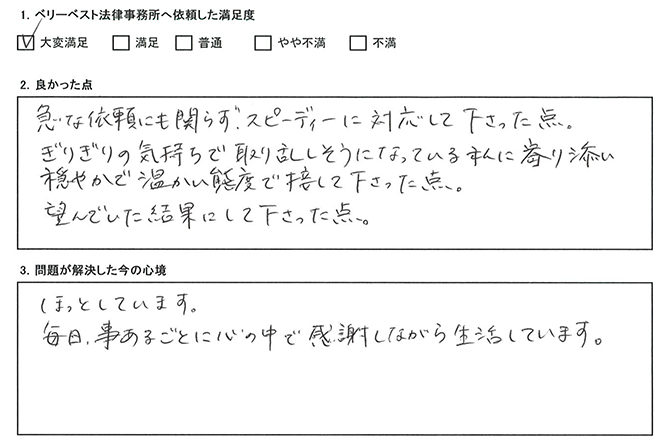 1. ベリーベスト法律事務所へ依頼した満足度
☑ 大変満足 □ 満足 □ 普通 □ やや不満 □ 不満
2. 良かった点
急な依頼にも関らず、スピーディーに対応して下さった点。
ぎりぎりの気持ちで取り乱しそうになっている私に寄り添い
穏やかで温かい態度で接して下さった点。
望んでいた結果にして下さった点。
3. 問題が解決した今の心境
ほっとしています。
毎日、事あるごとに心の中で感謝しながら生活しています。